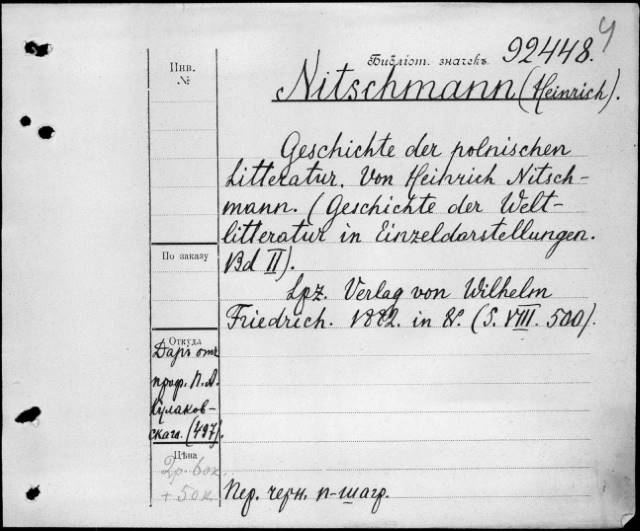 Библіот. значекъ 92448.
Инв.
№
Nitschmann (Heinrich).
Geschichte der polnischen
Litteratur. Von Heinrich Nitsch-
mann. (Geschichte der Welt-
litteratur in Einzeldarstellungen.
Bd II).
Lpz. Verlag von Wilhelm
Friedrich. 1882. in 8°. (S. VIII. 500).
По заказу
Откуда
Даръ отъ
проф. П. А.
Кулаков-
скаго. (497).
Цѣна
2р. 60к.
+ 50к
Пер. черн. п-шагр.